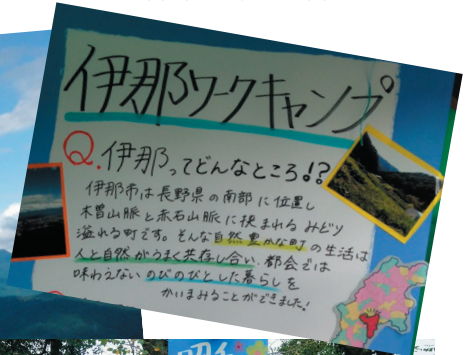 伊那ワークキャンプ
Q.伊那ってどんなところ!?
伊那市は長野県の南部に位置し
木曽山脈と赤石山脈に挟まれるみどり
溢れる町です。そんな自然豊かな町の生活は
人と自然がうまく共存し合い、都会では
味わえないのびのびとした暮らしを
かいまみることができました!